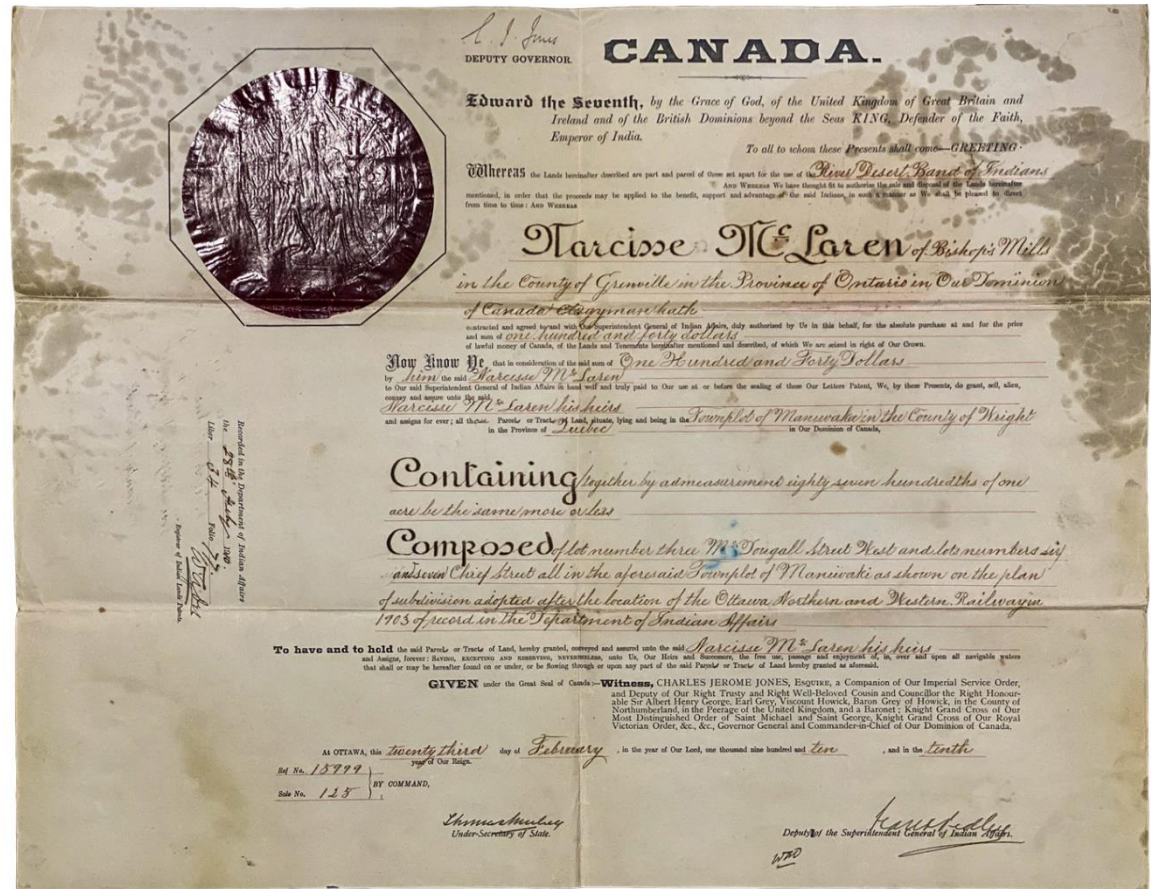 C. J. Jones
DEPUTY GOVERNOR.
CANADA.
Edward the Seventh, by the Grace of God, of the United Kingdom of Great Britain and
Ireland and of the British Dominions beyond the Seas KING, Defender of the Faith,
Emperor of India.
To all to whom these Presents shall come—GREETING:
Whereas the Lands hereinafter described are part and parcel of those set apart for the use of the River Desert Band of Indians
AND WHEREAS We have thought fit to authorize the sale and disposal of the Lands hereinafter
mentioned, in order that the proceeds may be applied to the benefit, support and advantage of the said Indians, in such a manner as We shall be pleased to direct
from time to time: AND WHEREAS
Narcisse McLaren of Bishop's Mills
in the County of Grenville in the Province of Ontario in Our Dominion
of Canada Clergyman hath
contracted and agreed by and with Our Superintendent General of Indian Affairs, duly authorized by Us in this behalf, for the absolute purchase at and for the price
and sum of one hundred and forty dollars
of lawful money of Canada, of the Lands and Tenements hereinafter mentioned and described, of which We are seized in right of Our Crown.
Now Know Ye, that in consideration of the said sum of One Hundred and Forty Dollars
by him the said Narcisse McLaren
to Our said Superintendent General of Indian Affairs in hand well and truly paid to Our use at or before the sealing of these Our Letters Patent, We, by these Presents, do grant, sell, alien,
convey and assure unto the said
Narcisse McLaren his heirs
and assigns for ever; all those Parcels or Tracts of Land, situate, lying and being in the Townplot of Maniwaki in the County of Wright
in the Province of Quebec in Our Dominion of Canada,
Containing together by admeasurement eighty seven hundredths of one
acre be the same more or less
Composed of lot number three McDougall Street West and lots numbers six
and seven Chief Street all in the aforesaid Townplot of Maniwaki as shown on the plan
of subdivision adopted after the location of the Ottawa Northern and Western Railway in
1903 of record in the Department of Indian Affairs
To have and to hold the said Parcels or Tracts of Land, hereby granted, conveyed and assured unto the said Narcisse McLaren his heirs
and Assigns, forever: SAVING, EXCEPTING AND RESERVING, NEVERTHELESS, unto Us, Our Heirs and Successors, the free use, passage and enjoyment of, in, over and upon all navigable waters
that shall or may be hereafter found on or under, or be flowing through or upon any part of the said Parcels or Tracts of Land hereby granted as aforesaid.
GIVEN under the Great Seal of Canada:—Witness, CHARLES JEROME JONES, ESQUIRE, a Companion of Our Imperial Service Order,
and Deputy of Our Right Trusty and Right Well-Beloved Cousin and Councillor the Right Honour-
able Sir Albert Henry George, Earl Grey, Viscount Howick, Baron Grey of Howick, in the County of
Northumberland, in the Peerage of the United Kingdom, and a Baronet; Knight Grand Cross of Our
Most Distinguished Order of Saint Michael and Saint George, Knight Grand Cross of Our Royal
Victorian Order, &c., &c., Governor General and Commander-in-Chief of Our Dominion of Canada.
At OTTAWA, this twenty third day of February, in the year of Our Lord, one thousand nine hundred and ten, and in the tenth
year of Our Reign.
Ref No. 15999
Sale No. 125
BY COMMAND,
Under-Secretary of State.
Deputy of the Superintendent General of Indian Affairs.
Recorded in the Department of Indian Affairs
the 28th Feby 1910.
Liber 34 Folio 77.
Registrar of Indian Lands Patents.